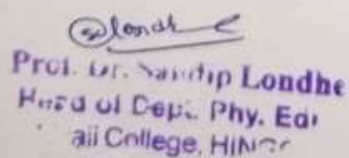 Londhe
Prof. Dr. Sandip Londhe
Head of Dept. Phy. Edu
aji College, HING